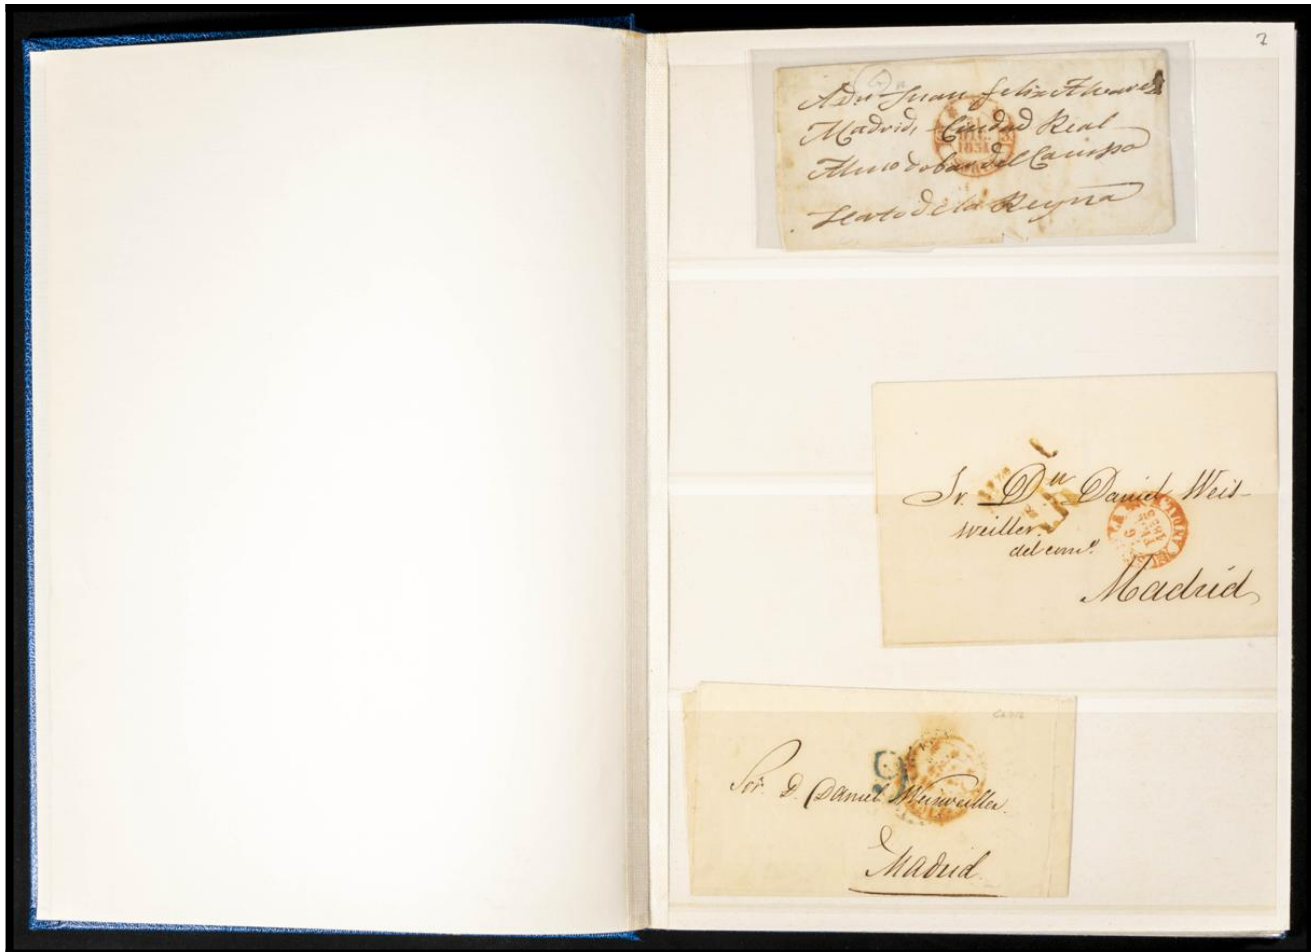 2
A Dn Juan Felix Alvarez
Madrid, Ciudad Real
Almodobar del Campo
de la Reyna
DIC.
1851
Sr. Dn Daniel Weis-
weiller.
del com.o
Madrid
Sor. D. Daniel Weisweiller.
Madrid.